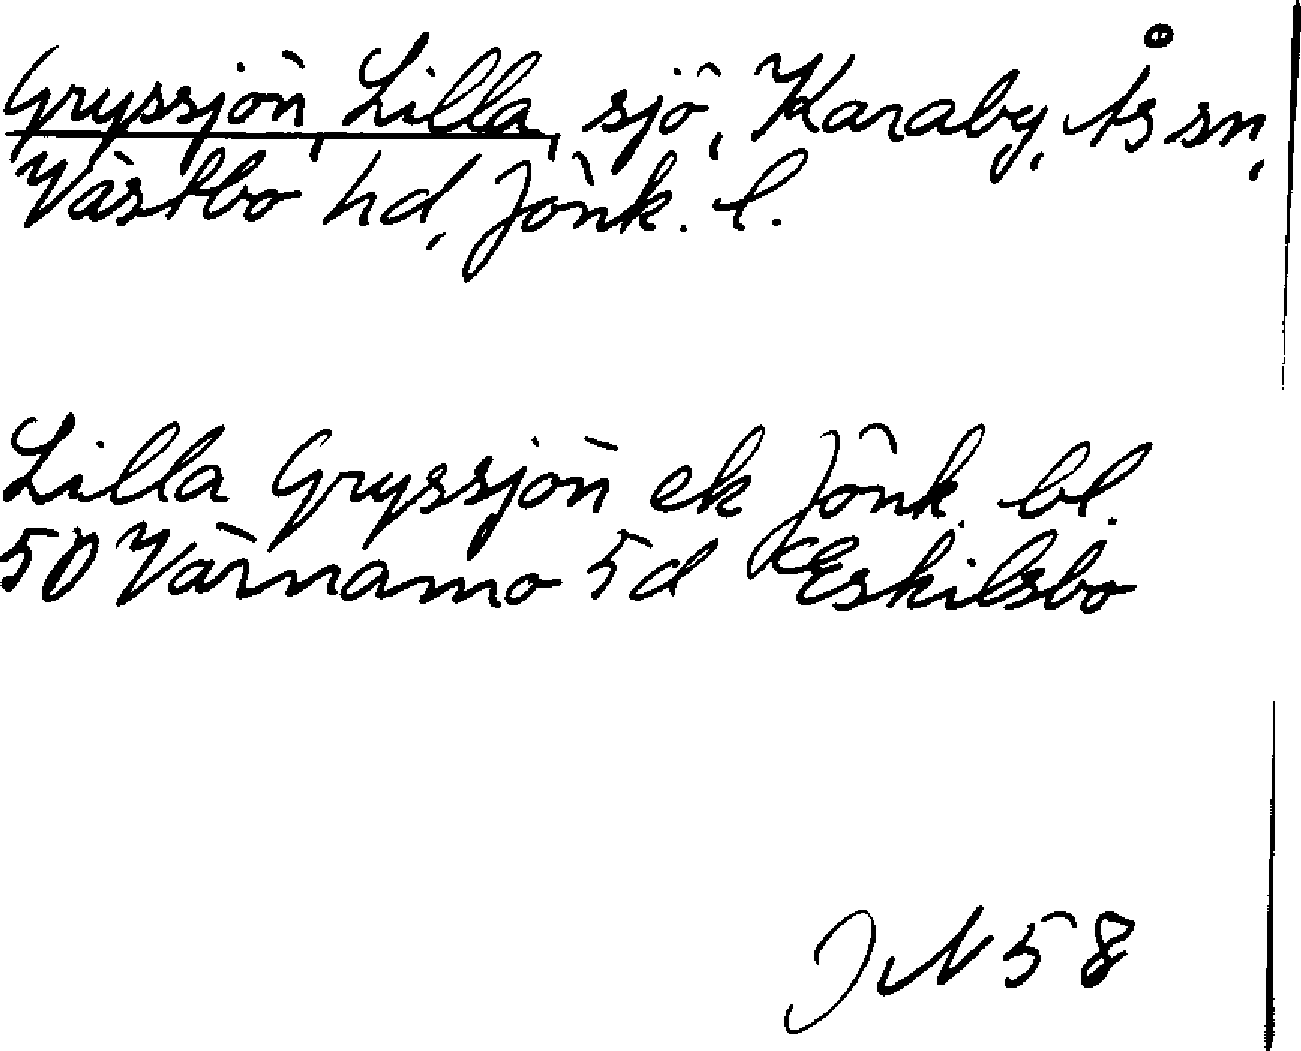 Gryssjön, Lilla, sjö, Karaby, Ås sn,
Västbo hd, Jönk. l.
Lilla Gryssjön ek Jönk. bl.
50 Värnamo 5d Eskilsbo
JN 58